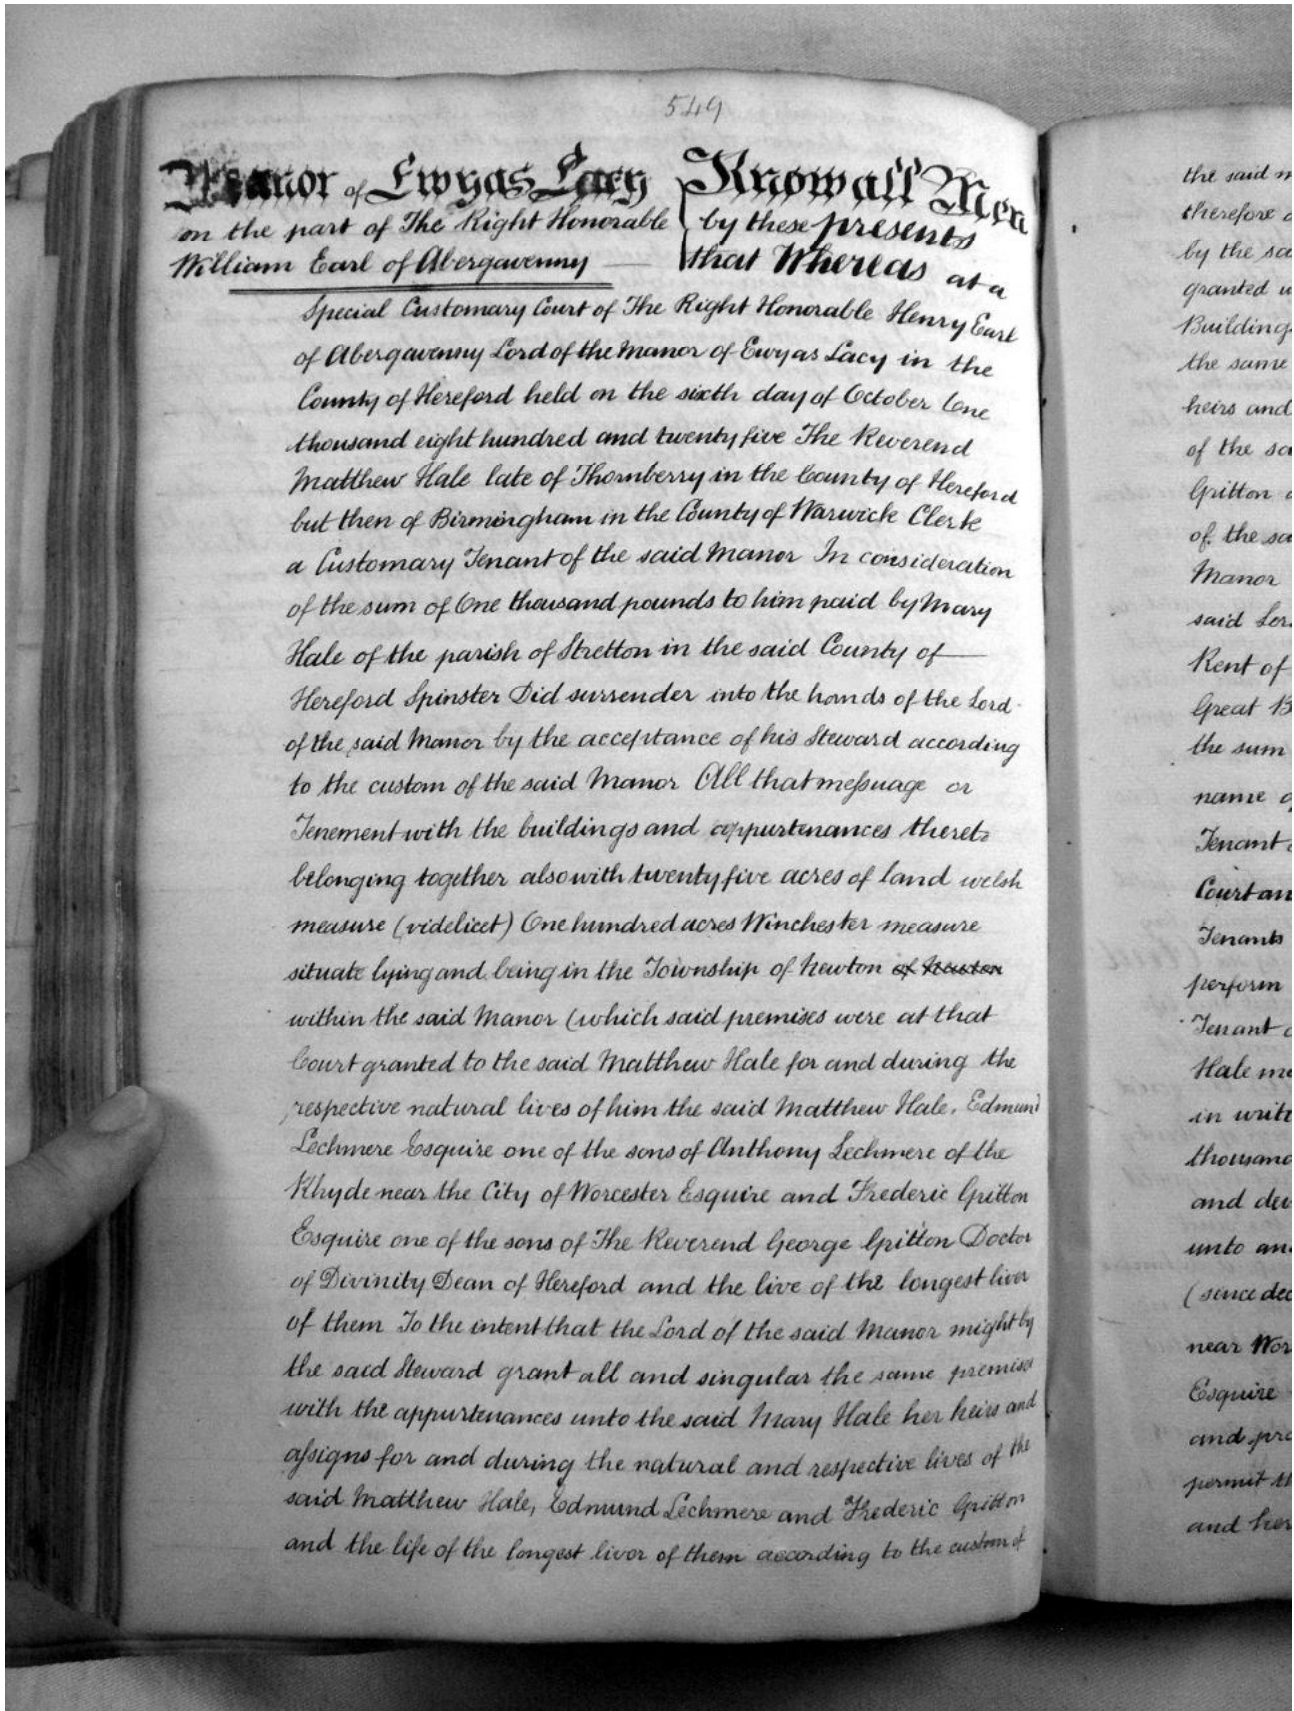 549
Manor of Ewyas Lacy
on the part of The Right Honorable
William Earl of Abergavenny
Know all Men
by these presents
that Whereas at a
Special Customary Court of The Right Honorable Henry Earl
of Abergavenny Lord of the Manor of Ewyas Lacy in the
County of Hereford held on the sixth day of October One
thousand eight hundred and twenty five The Reverend
Matthew Hale late of Thornberry in the County of Hereford
but then of Birmingham in the County of Warwick Clerk
a Customary Tenant of the said Manor In consideration
of the sum of One thousand pounds to him paid by Mary
Hale of the parish of Stretton in the said County of
Hereford Spinster Did surrender into the hands of the Lord
of the said Manor by the acceptance of his Steward according
to the custom of the said Manor All that messuage or
Tenement with the buildings and appurtenances thereto
belonging together also with twenty five acres of land welsh
measure (videlicet) One hundred acres Winchester measure
situate lying and being in the Township of Newton of Newton
within the said Manor (which said premises were at that
Court granted to the said Matthew Hale for and during the
respective natural lives of him the said Matthew Hale, Edmund
Lechmere Esquire one of the sons of Anthony Lechmere of the
Rhyde near the City of Worcester Esquire and Frederic Gritton
Esquire one of the sons of The Reverend George Gritton Doctor
of Divinity Dean of Hereford and the live of the longest liver
of them To the intent that the Lord of the said Manor might by
the said Steward grant all and singular the same premises
with the appurtenances unto the said Mary Hale her heirs and
assigns for and during the natural and respective lives of the
said Matthew Hale, Edmund Lechmere and Frederic Gritton
and the life of the longest livor of them according to the custom of
the said
therefore
by the
granted
Building
the same
heirs and
of the
Gritton
of the
Manor
said
Rent of
Great
the sum
name
Tenant
Court
Tenants
perform
Tenant
Hale
in
thousand
and
unto
(since
near
Esquire
and
permit
and her